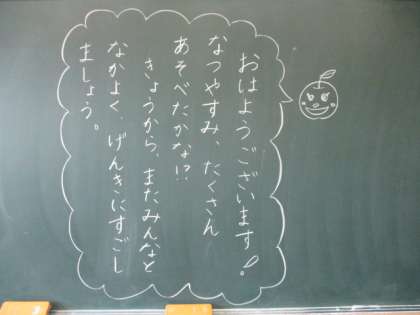 おはようございます!。
なつやすみ、たくさん
あそべたかな!?
きょうから、またみんなと
なかよく、げんきにすごし
ましょう。